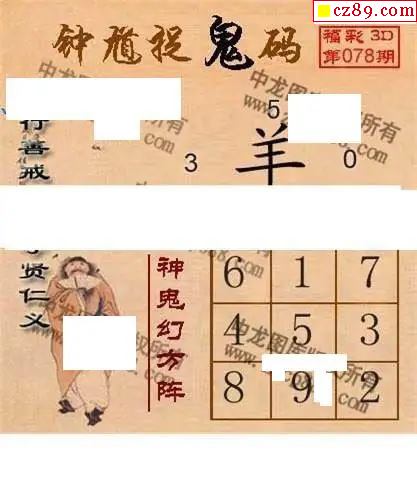 cz89.com
钟馗捉鬼码
福彩3D
第078期
行善戒
5
羊
3
0
贤仁义
神鬼幻方阵
6 1 7
4 5 3
8 9 2